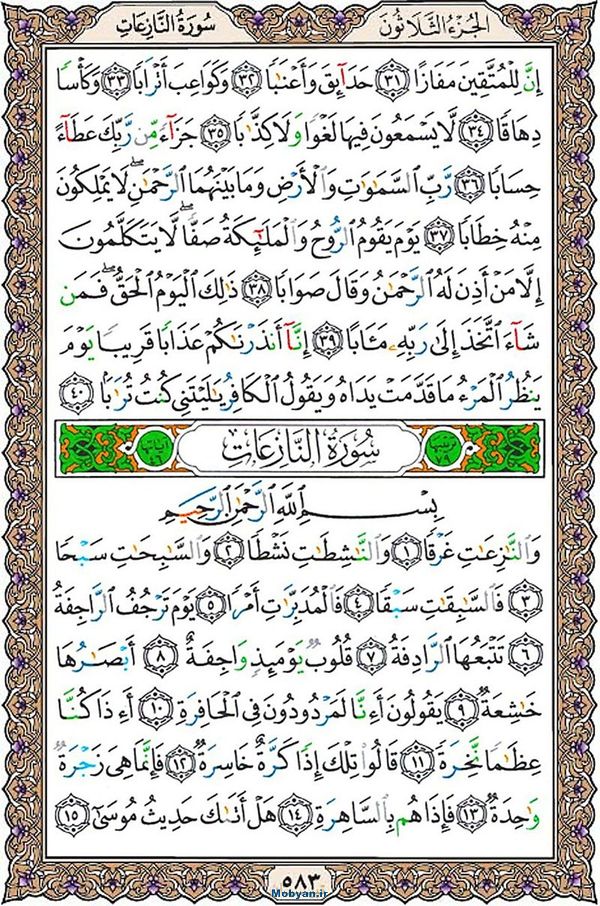 الجزء الثلاثون
سورة النازعات
إِنَّ لِلْمُتَّقِينَ مَفَازًا ﴿٣١﴾ حَدَآئِقَ وَأَعْنَٰبًا ﴿٣٢﴾ وَكَوَاعِبَ أَتْرَابًا ﴿٣٣﴾ وَكَأْسًا
دِهَاقًا ﴿٣٤﴾ لَّا يَسْمَعُونَ فِيهَا لَغْوًا وَلَا كِذَّٰبًا ﴿٣٥﴾ جَزَآءً مِّن رَّبِّكَ عَطَآءً
حِسَابًا ﴿٣٦﴾ رَّبِّ السَّمَٰوَٰتِ وَالْأَرْضِ وَمَا بَيْنَهُمَا الرَّحْمَٰنِ ۖ لَا يَمْلِكُونَ
مِنْهُ خِطَابًا ﴿٣٧﴾ يَوْمَ يَقُومُ الرُّوحُ وَالْمَلَٰٓئِكَةُ صَفًّا ۖ لَّا يَتَكَلَّمُونَ
إِلَّا مَنْ أَذِنَ لَهُ الرَّحْمَٰنُ وَقَالَ صَوَابًا ﴿٣٨﴾ ذَٰلِكَ الْيَوْمُ الْحَقُّ ۖ فَمَن
شَآءَ اتَّخَذَ إِلَىٰ رَبِّهِ مَـَٔابًا ﴿٣٩﴾ إِنَّآ أَنذَرْنَٰكُمْ عَذَابًا قَرِيبًا يَوْمَ
يَنظُرُ الْمَرْءُ مَا قَدَّمَتْ يَدَاهُ وَيَقُولُ الْكَافِرُ يَٰلَيْتَنِي كُنتُ تُرَٰبًا ﴿٤٠﴾
سُورَةُ النَّازِعَاتِ
بِسْمِ اللَّهِ الرَّحْمَٰنِ الرَّحِيمِ
وَالنَّٰزِعَٰتِ غَرْقًا ﴿١﴾ وَالنَّٰشِطَٰتِ نَشْطًا ﴿٢﴾ وَالسَّٰبِحَٰتِ سَبْحًا
﴿٣﴾ فَالسَّٰبِقَٰتِ سَبْقًا ﴿٤﴾ فَالْمُدَبِّرَٰتِ أَمْرًا ﴿٥﴾ يَوْمَ تَرْجُفُ الرَّاجِفَةُ
﴿٦﴾ تَتْبَعُهَا الرَّادِفَةُ ﴿٧﴾ قُلُوبٌ يَوْمَئِذٍ وَاجِفَةٌ ﴿٨﴾ أَبْصَٰرُهَا
خَٰشِعَةٌ ﴿٩﴾ يَقُولُونَ أَءِنَّا لَمَرْدُودُونَ فِي الْحَافِرَةِ ﴿١٠﴾ أَءِذَا كُنَّا
عِظَٰمًا نَّخِرَةً ﴿١١﴾ قَالُوا تِلْكَ إِذًا كَرَّةٌ خَاسِرَةٌ ﴿١٢﴾ فَإِنَّمَا هِيَ زَجْرَةٌ
وَٰحِدَةٌ ﴿١٣﴾ فَإِذَا هُم بِالسَّاهِرَةِ ﴿١٤﴾ هَلْ أَتَىٰكَ حَدِيثُ مُوسَىٰ ﴿١٥﴾
٥٨٣
Mobyan.ir